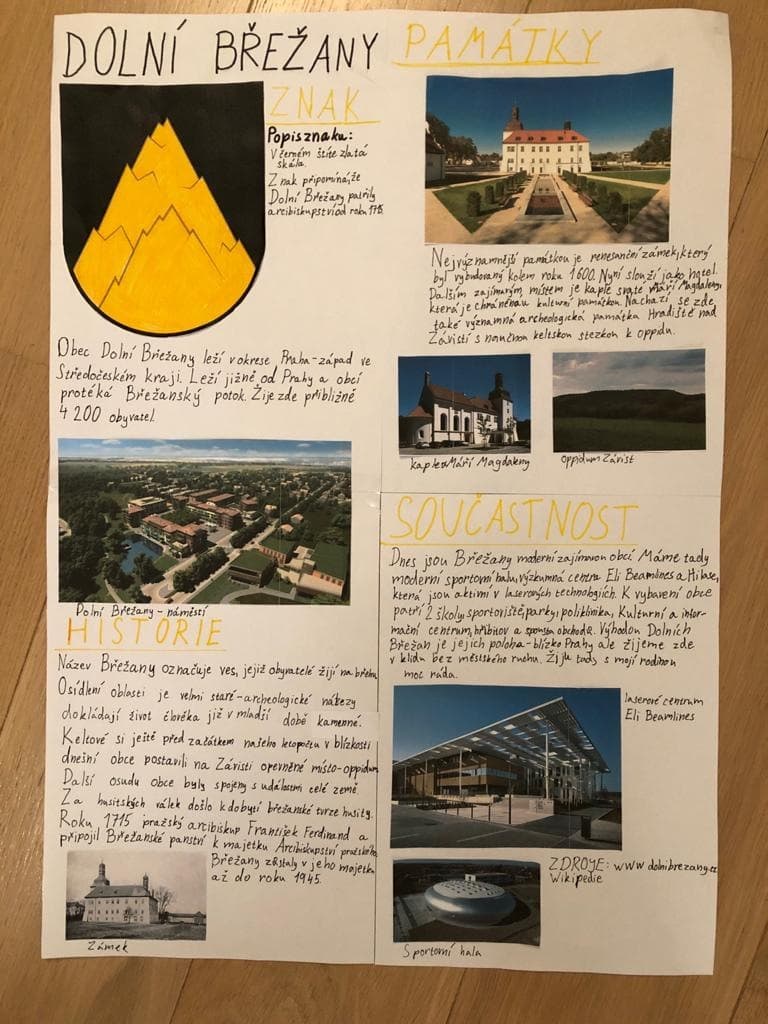 DOLNÍ BŘEŽANY
ZNAK
Popis znaku:
V černém štíte zlatá
skála.
Znak připomíná, že
Dolní Břežany patřily
arcibiskupství od roku 1715.
Obec Dolní Břežany leží v okrese Praha-západ ve
Středočeském kraji. Leží jižně od Prahy a obcí
protéká Břežanský potok. Žije zde přibližně
4 200 obyvatel.
Dolní Břežany - náměstí
HISTORIE
Název Břežany označuje ves, jejíž obyvatelé žijí na břehu.
Osídlení oblasti je velmi staré-archeologické nálezy
dokládají život člověka již v mladší době kamenné.
Keltové si ještě před začátkem našeho letopočtu v blízkosti
dnešní obce postavili na Závisti opevněné místo-oppidum.
Další osudy obce byly spojeny s událostmi celé země.
Za husitských válek došlo k dobytí břežanské tvrze husity.
Roku 1715 pražský arcibiskup František Ferdinand a
připojil Břežanské panství k majetku Arcibiskupství pražského.
Břežany zůstaly v jeho majetku
až do roku 1945.
Zámek
PAMÁTKY
Nejvýznamnější památkou je renesanční zámek, který
byl vybudovaný kolem roku 1600. Nyní slouží jako hotel.
Dalším zajímavým místem je kaple svaté Máří Magdaleny,
která je chráněnau kulturní památkou. Nachází se zde
také významná archeologická památka Hradiště nad
Závistí s naučnou keltskou stezkou k oppidu.
kaple Máří Magdaleny
oppidum Závist
SOUČASTNOST
Dnes jsou Břežany moderní zajímavou obcí. Máme tady
moderní sportovní halu, výzkumná centra Eli Beamlines a Hilase,
která jsou aktivní v laserových technologiích. K vybavení obce
patří 2 školy, sportoviště, parky, poliklinika, Kulturní a infor-
mační centrum, hřbitov a spousta obchodů. Výhodou Dolních
Břežan je jejich poloha-blízko Prahy ale žijeme zde
v klidu bez městského ruchu. Žiju tady s mojí rodinou
moc ráda.
laserové centrum
Eli Beamlines
Sportovní hala
ZDROJE: www.dolnibrezany.cz
Wikipedie